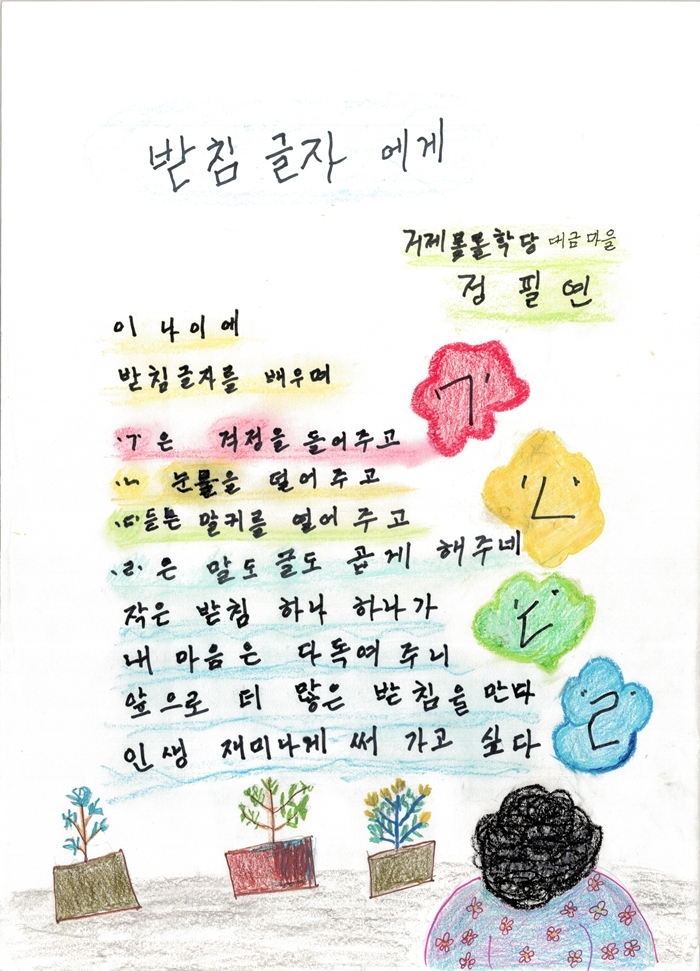 받침 글자 에게
거제몰몰학당 대금마을
정 필 연
이 나이에
받침글자를 배우며
'ㄱ'은 걱정을 들어주고
'ㄴ' 눈물을 덜어주고
'ㄷ'듣는 말귀를 열어주고
'ㄹ'은 말도 글도 곱게 해주네
작은 받침 하나 하나가
내 마음은 다독여 주니
앞으로 더 많은 받침을 만다
인생 재미나게 써 가고 싶다
'ㄱ'
'ㄴ'
'ㄷ'
'ㄹ'